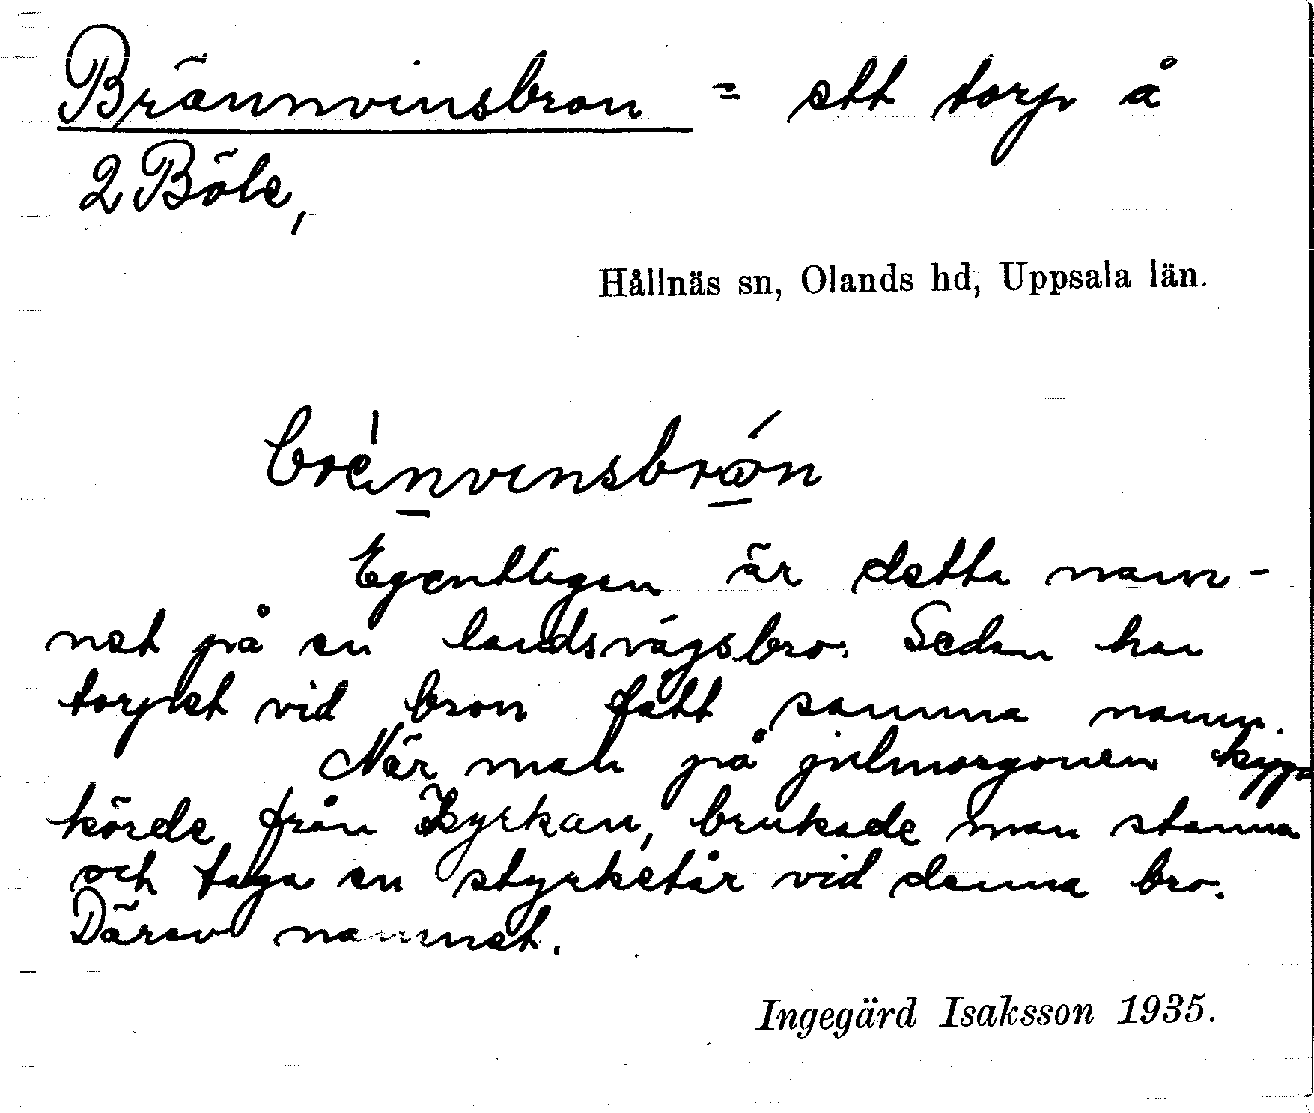 Brännvinsbron = ett torp å
2 Böle,
Hållnäs sn, Olands hd, Uppsala län.
brè́nvinsbrón
Egentligen är detta nam-
net på en landsvägsbro. Sedan har
torpet vid bron fått samma namn.
När man på julmorgonen kapp
körde från kyrkan, brukade man stanna
och taga en styrketår vid denna bro.
Därav namnet.
Ingegärd Isaksson 1935.